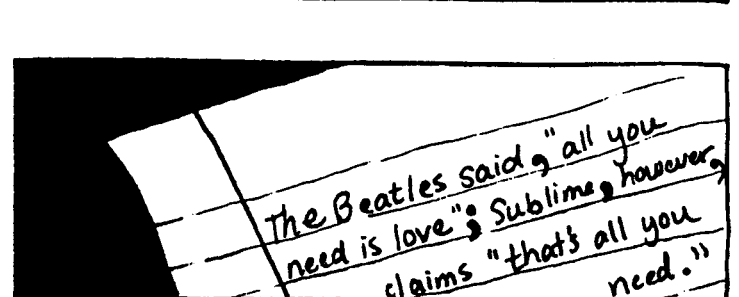 The Beatles said, "all you
need is love"; Sublime, however,
claims "that's all you
need."